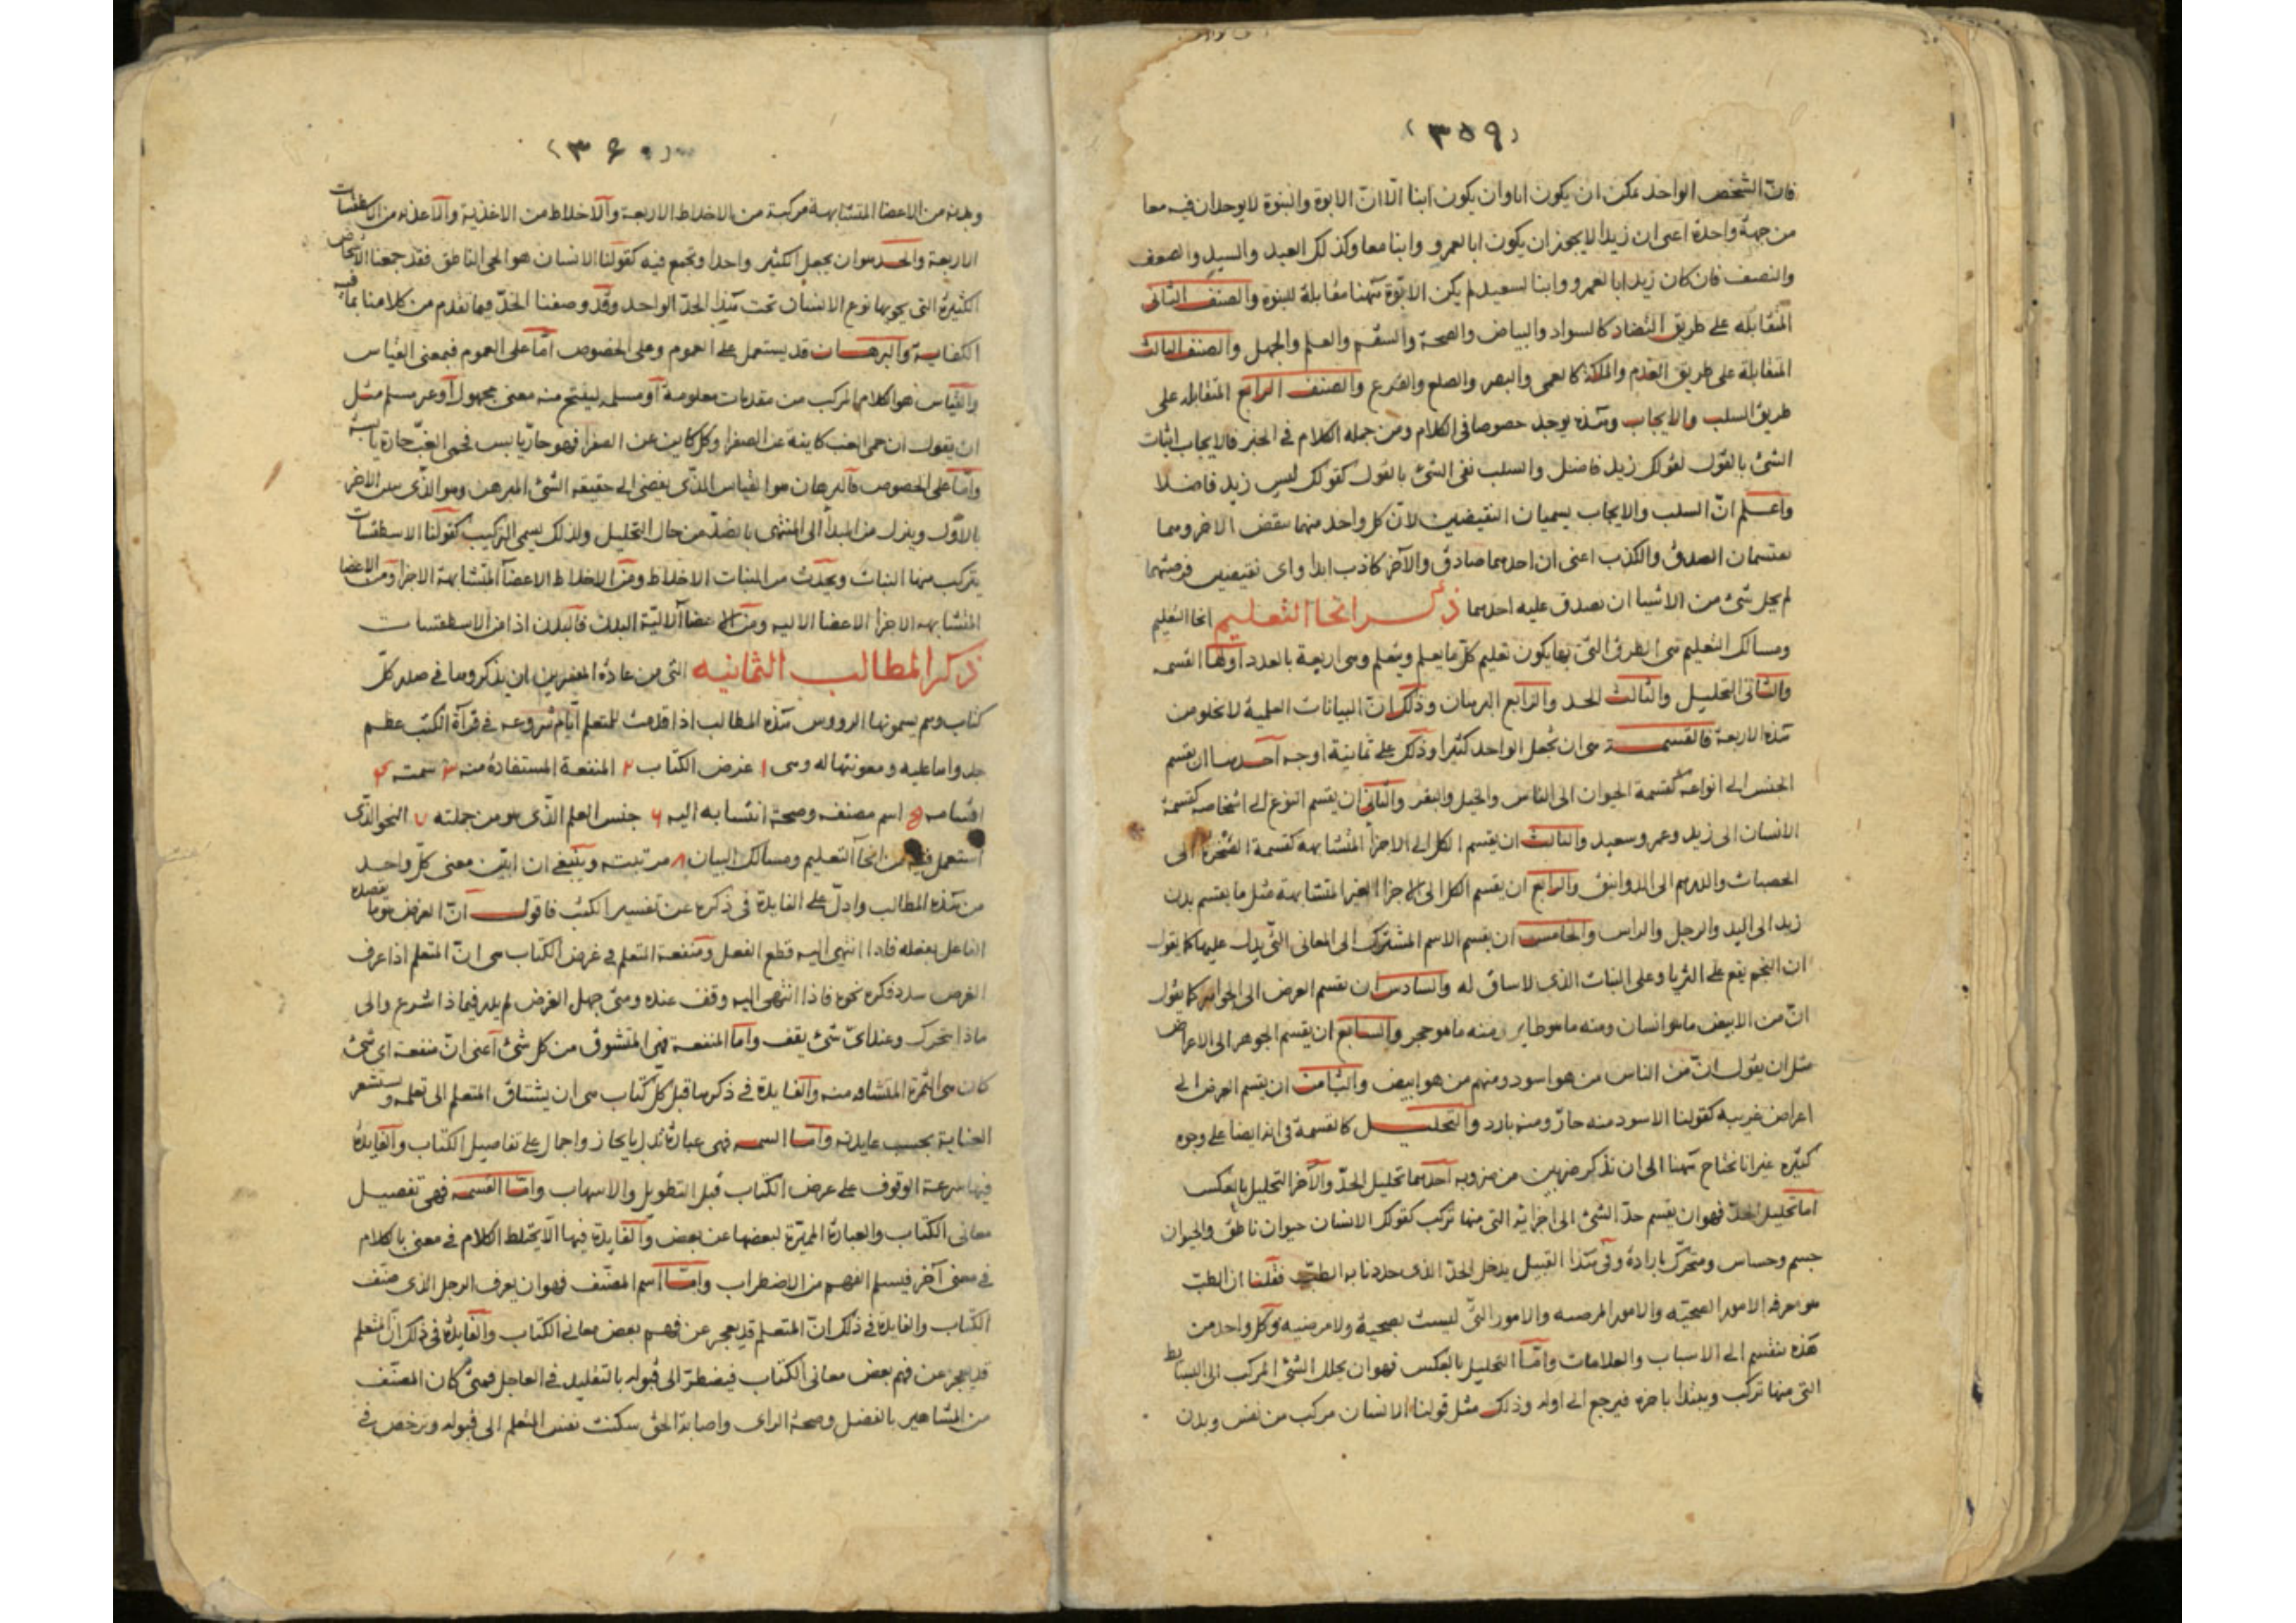 (٣٥٩)
فانّ الشخص الواحد يمكن ان يكون ابا وان يكون ابنا الّا انّ الابوة والبنوة لا يوجدان فيه معا
من جهة واحدة اعنى ان زيدا لا يجوز ان يكون ابا لعمرو وابنا معا وكذلك العبد والسيد والضعف
والنصف فان كان زيد ابا لعمرو وابنا لسعيد لم يكن الابوّة ههنا مقابلة للبنوة والصنف الثانى
المتقابله على طريق التضاد كالسواد والبياض والصحة والسقم والعلم والجهل والصنف الثالث
المتقابلة على طريق العدم والملكة كالعمى والبصر والصلع والفرع والصنف الرابع المتقابله على
طريق السلب والايجاب وهذه يوجد خصوصا فى الكلام ومن جمله الكلام فى الخبر فالايجاب اثبات
الشئ بالقول كقولك زيد فاضل والسلب نفى الشئ بالقول كقولك ليس زيد فاضلا
واعلم انّ السلب والايجاب يسميان النقيضين لان كل واحد منهما ينقض الاخر وهما
يقتسمان الصدق والكذب اعنى ان احدهما صادق والآخر كاذب ابدا واى نقيضين فرضتهما
لم يخل شئ من الاشيا ان يصدق عليه احدهما ذكر انحا التعليم انحا التعليم
ومسالك التعليم هى الطرق التى بها يكون تعليم كل ما يعلم ويتعلم وهى اربعة بالعدد اولها القسمه
والثانى التحليل والثالث الحد والرابع البرهان وذلك انّ البيانات العلمية لا تخلو من
هذه الاربعة فالقسمة هى ان تجعل الواحد كثيرا وذلك على ثمانية اوجه احدها ان يقسم
الجنس الى انواعه كقسمة الحيوان الى الناس والخيل والبقر والثانى ان يقسم النوع الى اشخاصه كقسمة
الانسان الى زيد وعمر وسعيد والثالث ان يقسم الكل الى الاجزا المتشابهة كقسمة الشجرة الى
الخصبات والدرهم الى الدوانيق والرابع ان يقسم الكل الى الاجزا الغير المتشابهة مثل ما يقسم بدن
زيد الى اليد والرجل والراس والخامس ان يقسم الاسم المشترك الى المعانى التى يدل عليها كما يقول
ان النجم يقع على الثريا وعلى النبات الذى لا ساق له والسادس ان يقسم العرض الى الجواهر كما يقول
انّ من الابيض ما هو انسان ومنه ما هو طاير ومنه ما هو حجر والسابع ان يقسم الجوهر الى الاعراض
مثل ان يقول انّ من الناس من هو اسود ومنهم من هو ابيض والثامن ان يقسم العرض الى
اعراض غريبه كقولنا الاسود منه حارّ ومنه بارد والتحليل كالقسمة فى انه ايضا على وجوه
كثيره غير انا نحتاج ههنا الى ان نذكر ضربين من ضروبه احدهما تحليل الحدّ والآخر التحليل بالعكس
اما تحليل الحدّ فهو ان يقسم حدّ الشئ الى اجزائه التى منها تركب كقولك الانسان حيوان ناطق والحيوان
جسم وحساس ومتحرّك بارادة وفى هذا القبيل يدخل الحدّ الذى حددنا به الطبّ فقلنا ان الطبّ
هو معرفه الامور الصحيّه والامور المرضيه والامور التى ليست بصحية ولا مرضيه وكل واحد من
هذه ينقسم الى الاسباب والعلامات وامّا التحليل بالعكس فهو ان يحلل الشئ المركب الى البسايط
التى منها تركب ويبتدا باخره فيرجع الى اوله وذلك مثل قولنا الانسان مركب من نفس وبدن
(٣٦٠)
وبدنه من الاعضا المتشابهة مركبة من الاخلاط الاربعة والاخلاط من الاغذية والاغذيه من الاسطقسات
الاربعة والحد هو ان يجعل الكثير واحدا وتجمع فيه كقولنا الانسان هو الحى الناطق فقد جمعنا الاشخاص
الكثيرة التى يحويها نوع الانسان تحت هذا الحدّ الواحد وقد وصفنا الحدّ فيما تقدم من كلامنا بما فيه
الكفاية والبرهان قد يستعمل على العموم وعلى الخصوص امّا على العموم فبمعنى القياس
والقياس هو الكلام المركب من مقدمات معلومة او مسلمه لينتج منه معنى مجهول او غير مسلم مثل
ان يقول ان حمى الغب كاينة عن الصفرا وكل كاين عن الصفرا فهو حارّ يابس فحمى الغبّ حارة يابسة
وامّا على الخصوص فالبرهان هو القياس الذى يفضى الى حقيقه الشئ المبرهن وهو الذى الاخر
بالاوّل وينزل من المبدأ الى المنتهى بالضدّ من حال التحليل ولذلك يسمى التركيب كقولنا الاسطقسات
يتركب منها النبات ويحدث من النبات الاخلاط ومن الاخلاط الاعضآ المتشابهة الاجزا ومن الاعضا
المتشابهه الاجزا الاعضا الاليه ومن الاعضا الاليّة البدن فالبدن اذا من الاسطقسات
ذكر المطالب الثمانيه التى من عادة المفسرين ان يذكروها فى صدر كلّ
كتاب وهم يسمونها الرووس هذه المطالب اذا قدمت للمتعلم ايام شروعه فى قرآة الكتب عظم
جدواها عليه ومعونتها له وهى ١ غرض الكتاب ٢ المنفعة المستفادة منه ٣ سمته ٤
اقسامه ٥ اسم مصنفه وصحة انتسابه اليه ٦ جنس العلم الذى هو من جملته ٧ النحو الذى
استعمل فيه من انحآ التعليم ومسالك البيان ٨ مرتبته وينبغى ان ابيّن معنى كلّ واحد
من هذه المطالب وادلّ على الفايدة فى ذكره عن تفسير الكتب فاقول انّ الغرض هو ما يقصده
الفاعل بفعله فاذا انتهى اليه قطع الفعل ومنفعة المتعلم فى غرض الكتاب هى انّ المتعلم اذا عرف
الغرض سدد فكره نحوه فاذا انتهى اليه وقف عنده ومتى جهل الغرض لم يدر فيماذا شرع والى
ماذا يتحرك وعند اىّ شئ يقف واما المنفعه فهى المتشوق من كل شئ اعنى انّ منفعة اى شئ
كان هى الثمرة منه والفايدة فى ذكرها قبل كلّ كتاب هى ان يشتاق المتعلم الى تعلمه ويستشعر
العناية بحسب عايدته وامّا السمه فهى عبارة تدل بايجاز واجمال على تفاصيل الكتاب والفايدة
فيها سرعة الوقوف على غرض الكتاب قبل التطويل والاسهاب وامّا القسمه فهى تفصيل
معانى الكتاب والعبارة المميّزة لبعضها عن بعض والفايدة فيها الّا يختلط الكلام فى معنى بالكلام
فى معنى آخر فيسلم الفهم من الاضطراب وامّا اسم المصنّف فهو ان يعرف الرجل الذى صنّف
الكتاب والفايدة فى ذلك انّ المتعلم قد يعجز عن فهم بعض معانى الكتاب والفايدة فى ذلك انّ المتعلم
قد يعجز عن فهم بعض معانى الكتاب فيضطرّ الى قبوله بالتقليد فى العاجل فمتى كان المصنّف
من المشاهير بالفضل وصحة الراى واصابة الحق سكنت نفس المتعلم الى قبوله وترخص فى